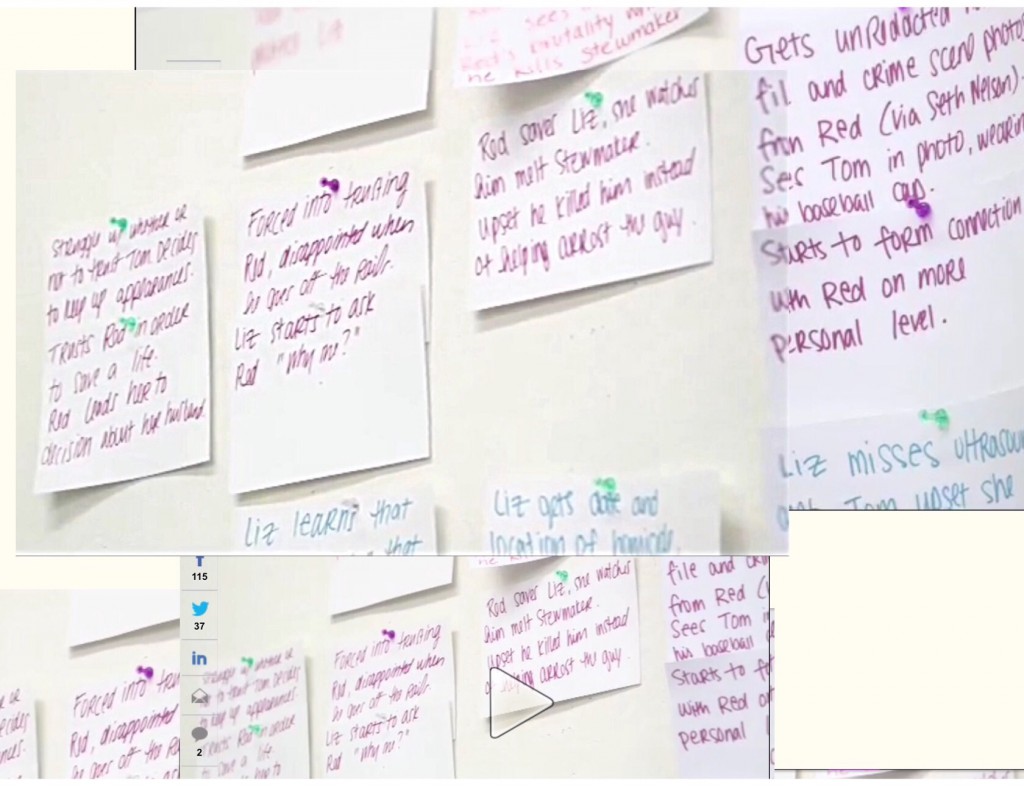 sees
Red's brutality
he kills Stewmaker
Gets unRedacted
fil and crime scene photo
from Red (via Seth Nelson).
Sees Tom in photo, wearin
his baseball cap.
Starts to form connection
with Red on more
personal level.
Red saves Liz, she watches
him melt Stewmaker.
Upset he killed him instead
of helping arrest the guy.
Forced into trusting
Red, disappointed when
he goes off the rails.
Liz starts to ask
Red "why me?"
struggle w/ whether or
not to trust Tom Decides
to keep up appearances.
Trusts Red in order
to save a life.
Red leads her to
decision about her husband
Liz misses ultrasou
Tom upset she
Liz learns that
that
Liz gets date and
location of homicide.
115
37
in
2
Red saves Liz, she watches
him melt Stewmaker.
Upset he killed him instead
arrest the guy.
file and
from Red
Sees Tom
his baseball
Starts to
with Red
personal
Forced into trusting
Red, disappointed when
he goes off the rails.
Liz starts to ask
Red "why me?"
whether or
not to trust Tom Decides
to keep up appearances.
Trusts Red in order
to save a life.
Forced into
Red, disappointed
he goes off the